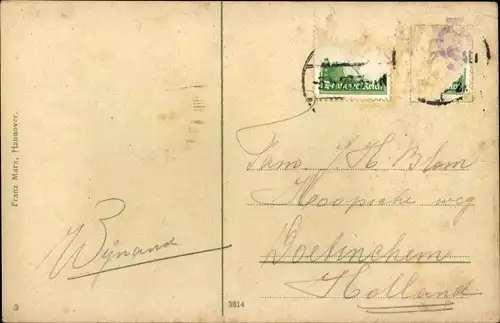 Franz Marx, Hannover.
3
Wijnand
3814
Deutsches Reich
Fam. J. H. Blom
weg
Doetinchem
Holland